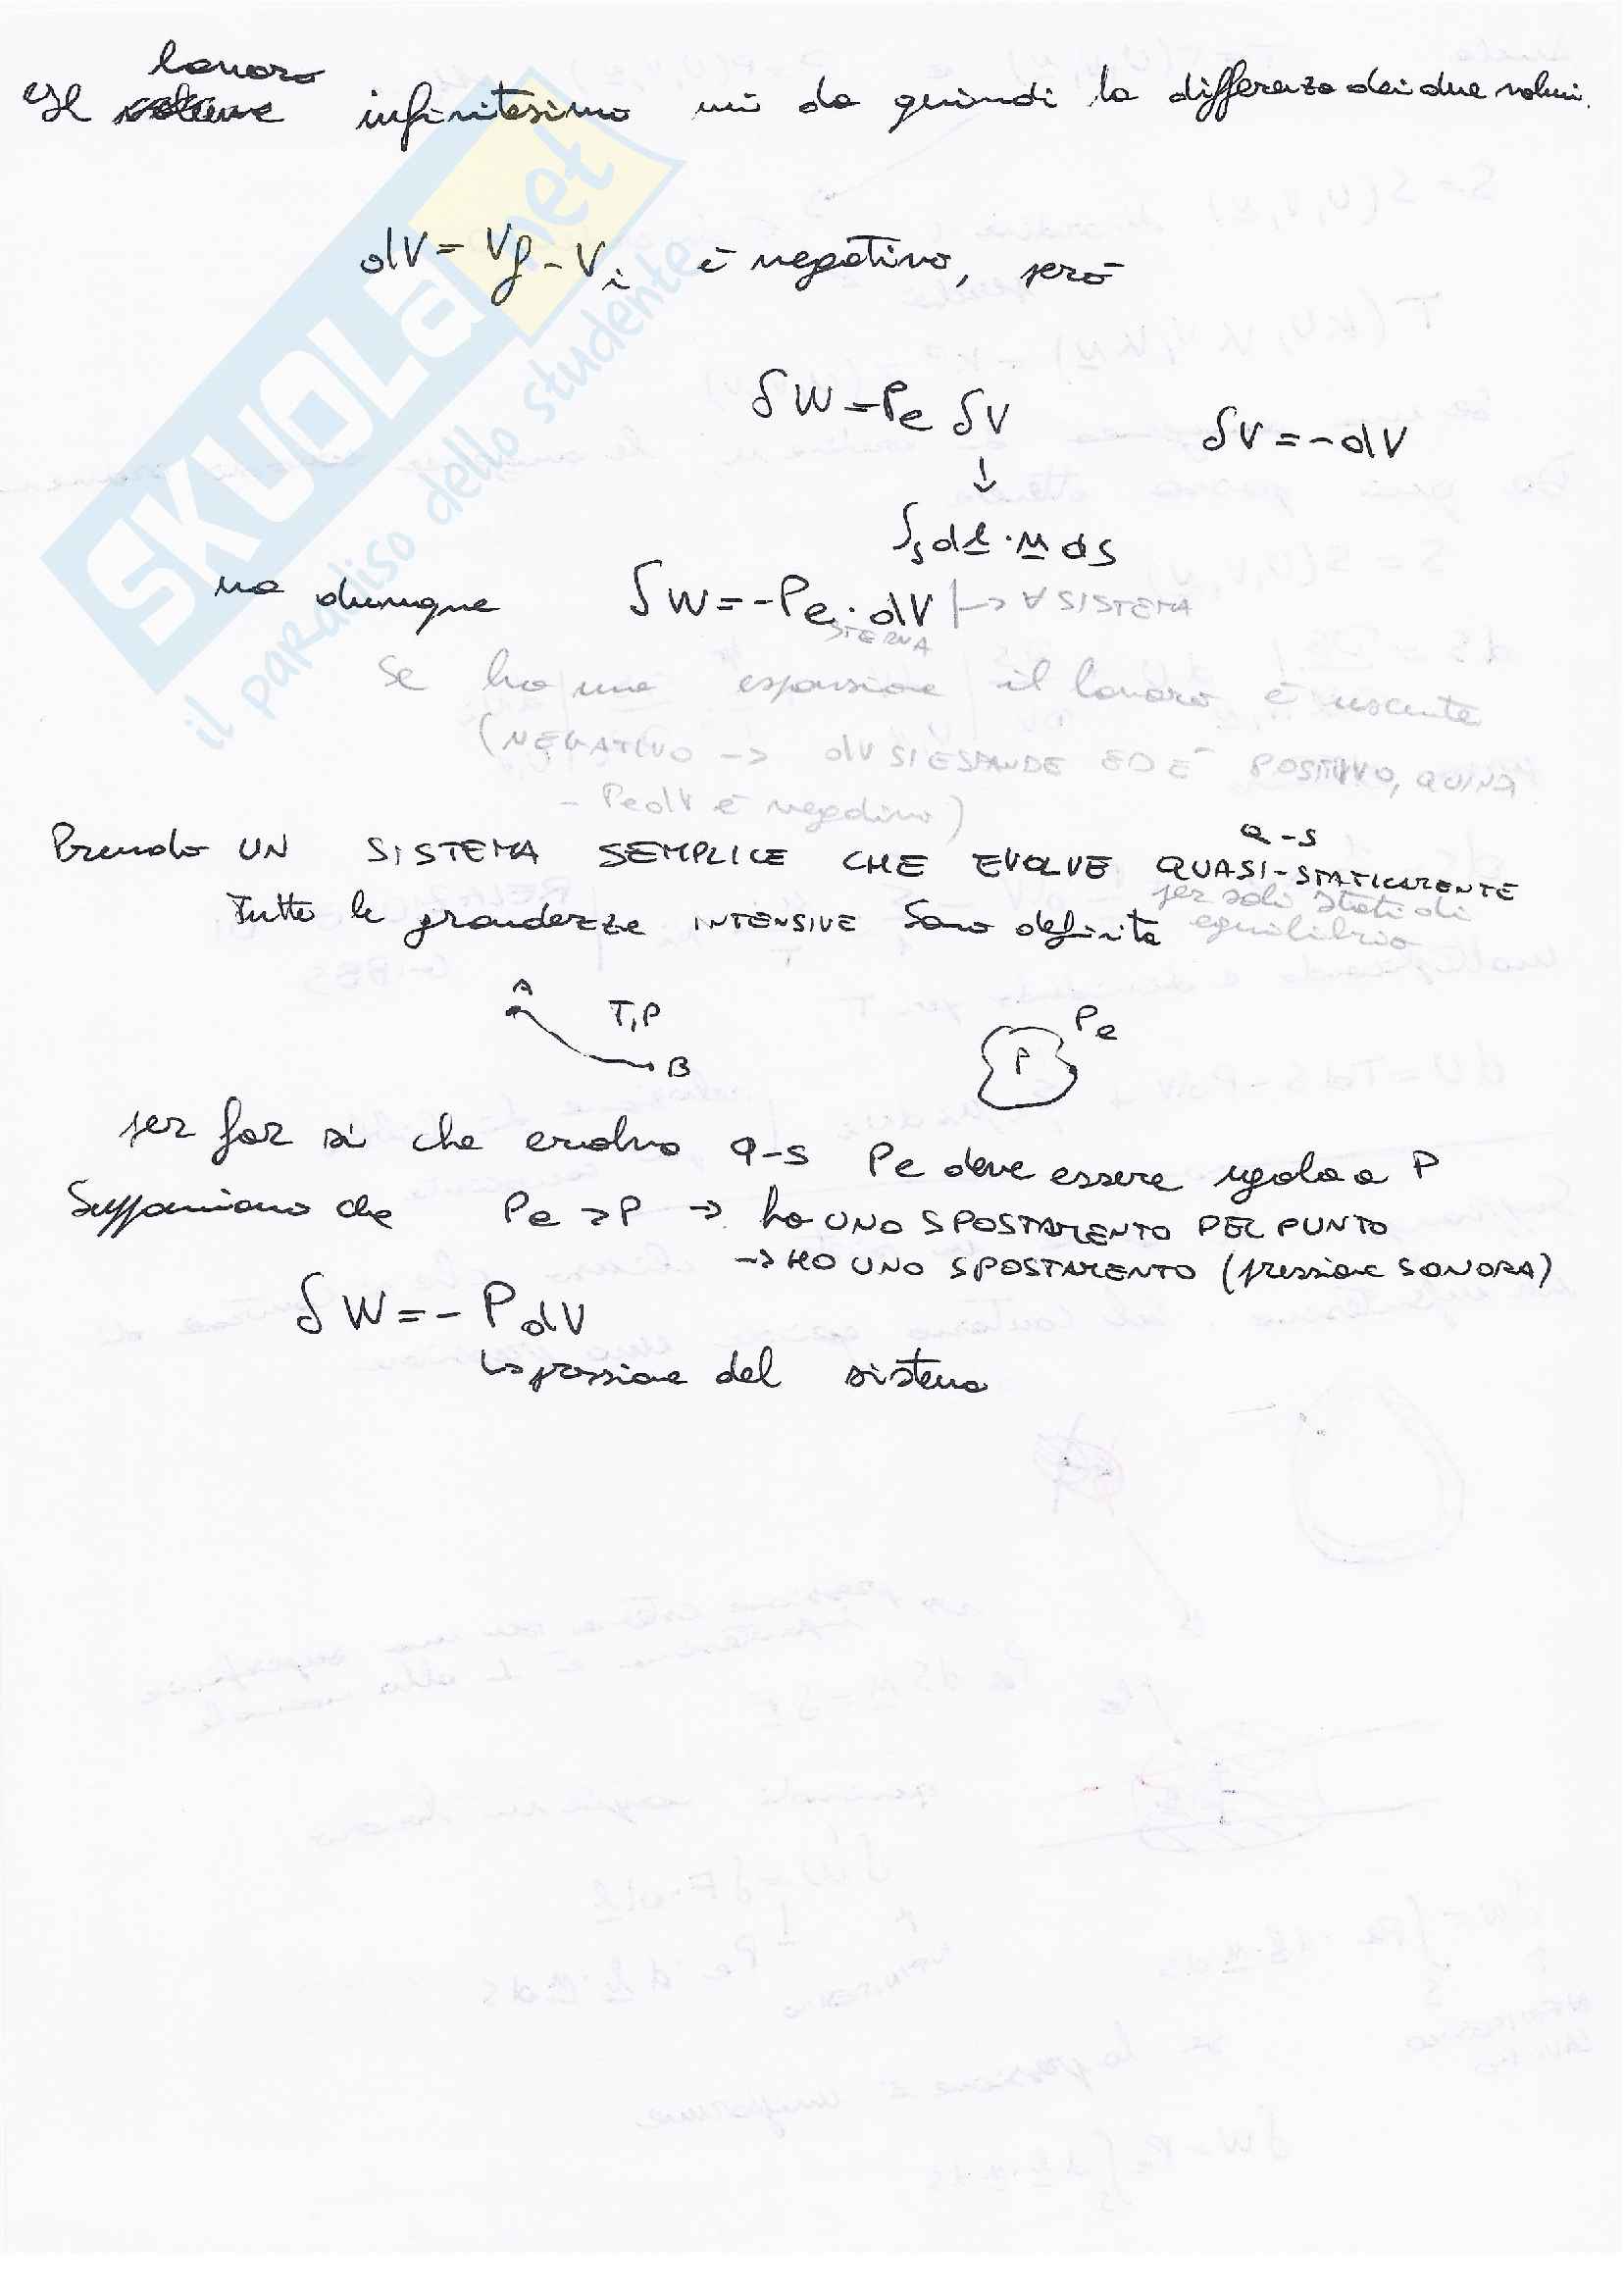 lavoro
Il volume infinitesimo mi da quindi la differenza dei due volumi.
dV = Vf - Vi è negativo, però
δW = Pe δV
δV = -dV
↓
∫s dl · n dS
ma dunque δW = -Pe · dV |→ ∀ SISTEMA
STERNA
Se ho una espansione il lavoro è uscente
(NEGATIVO → dV SI ESPANDE ED È POSITIVO, QUINDI
- Pe dV è negativo)
Q-S
Prendo UN SISTEMA SEMPLICE CHE EVOLVE QUASI-STATICAMENTE
per soli stati di
Tutte le grandezze INTENSIVE sono definite equilibrio
A T, P
B
Pe
P
per far sì che evolva q-s Pe deve essere uguale a P
Supponiamo che Pe > P → ho UNO SPOSTAMENTO DEL PUNTO
→ HO UNO SPOSTAMENTO (pressione SONORA)
δW = - P dV
↳ pressione del sistema
SKUOLA.net
il paradiso dello studente